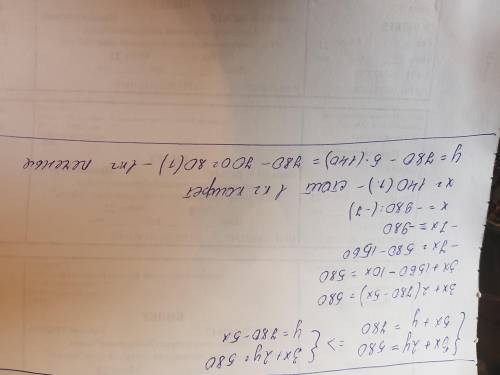 {3x+2y=580 => {3x+2y=580
{5x+y=780 {y=780-5x
3x+2(780-5x)=580
3x+1560-10x=580
-7x=580-1560
-7x=-980
x=-980:(-7)
x=140(р.) - стоит 1 кг конфет
y=780-5·(140)=780-700=80(р) - 1кг печенье